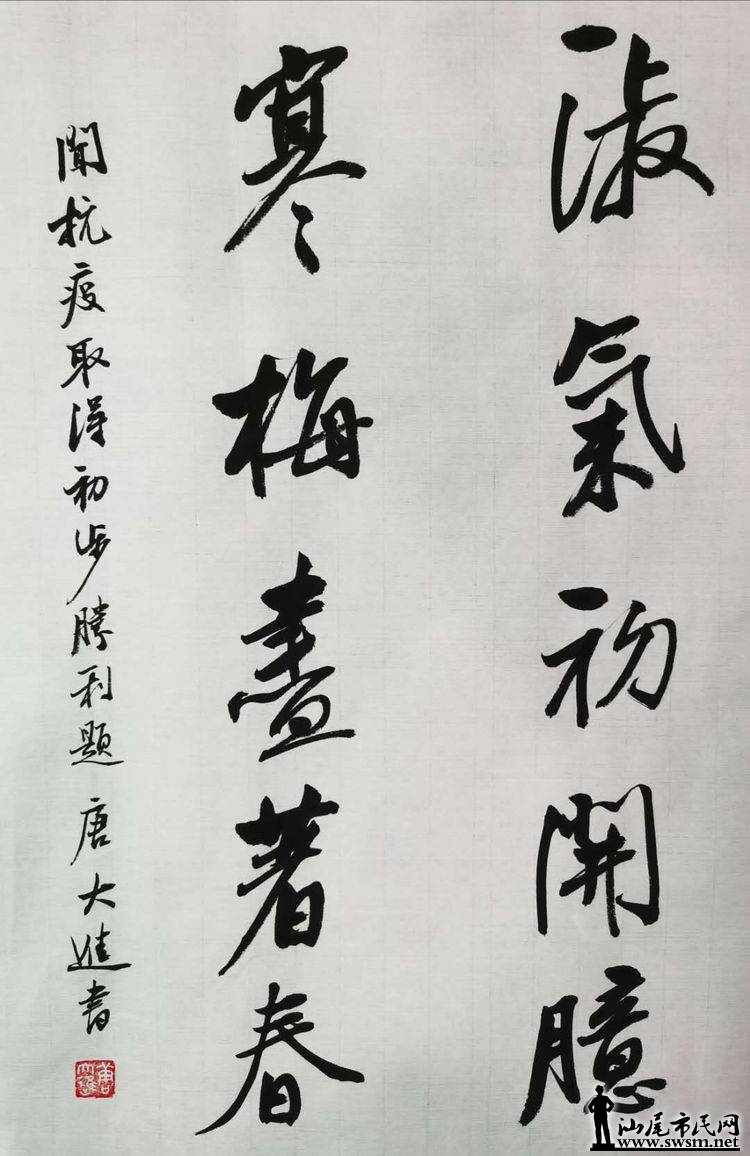 淑氣初開臆
寒梅盡著春
聞抗疫取得初步勝利題 唐大進書
汕尾市民网
www.swsm.net